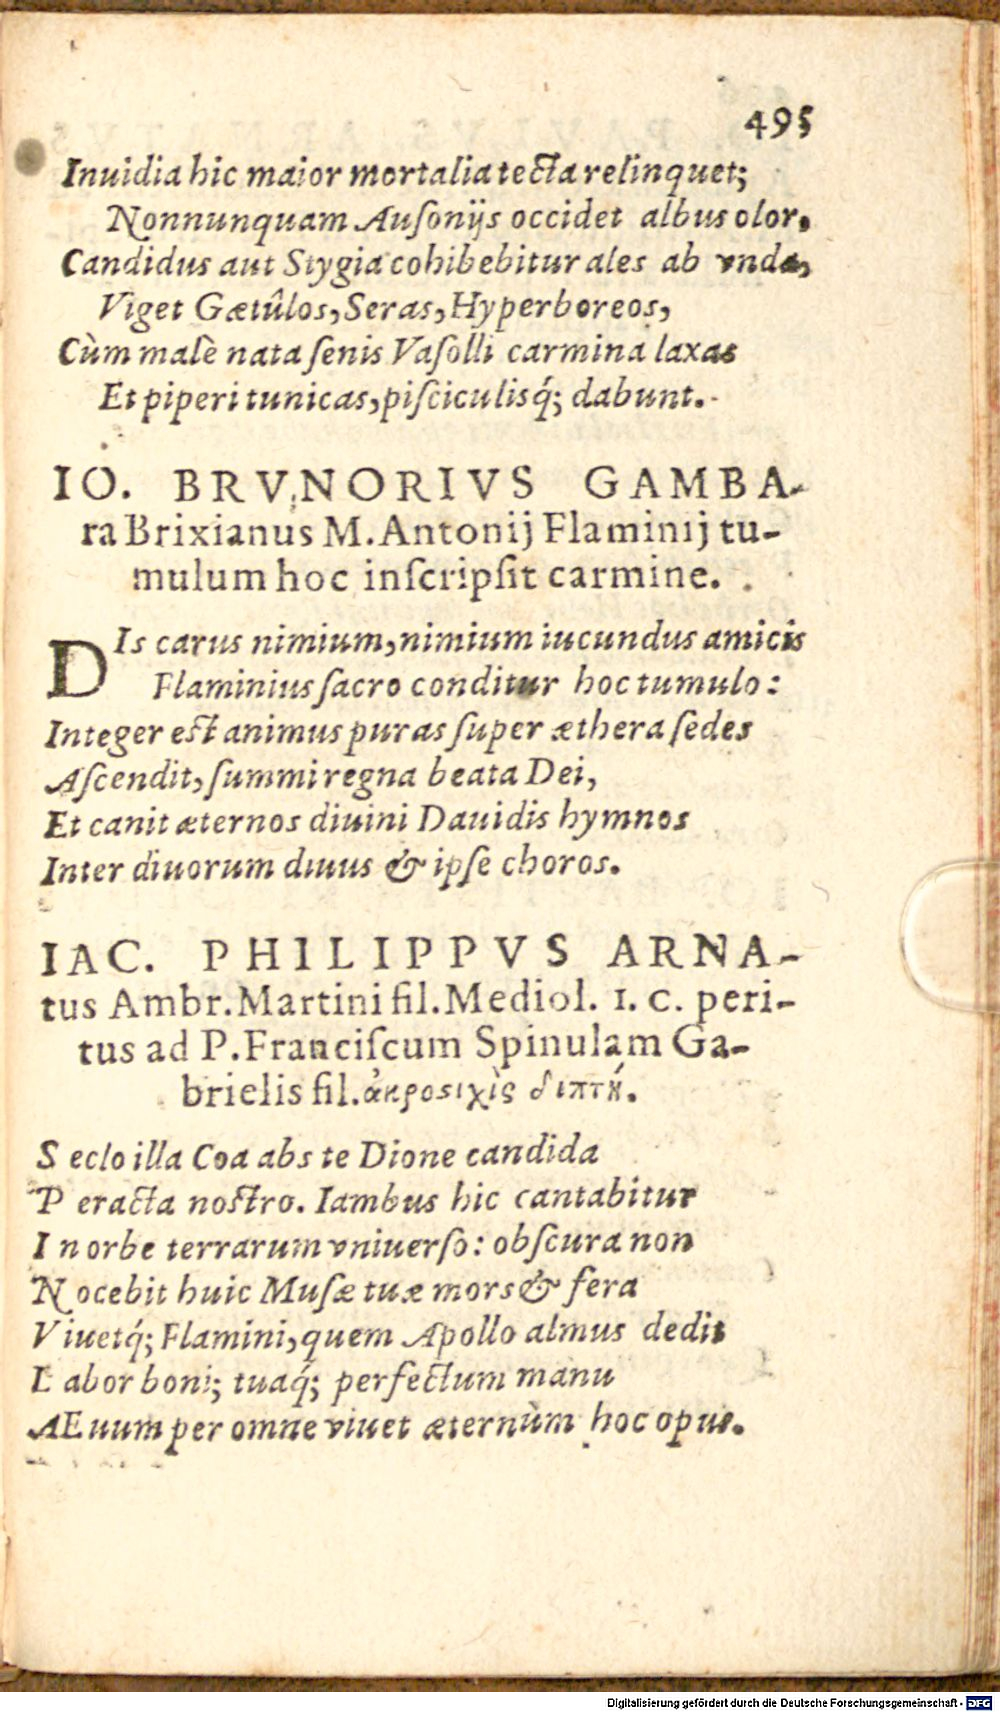 495
Inuidia hic maior mortalia tecta relinquet;
Nonnunquam Auſonijs occidet albus olor,
Candidus aut Stygia cohibebitur ales ab vnda,
Viget Gætûlos, Seras, Hyperboreos,
Cùm malè nata ſenis Vaſolli carmina laxas
Et piperi tunicas, piſciculisq́; dabunt.
IO. BRVNORIVS GAMBA-
ra Brixianus M. Antonij Flaminij tu-
mulum hoc inſcripſit carmine.
DIs carus nimium, nimium iucundus amicis
Flaminius ſacro conditur hoc tumulo:
Integer eſt animus puras ſuper æthera ſedes
Aſcendit, ſummi regna beata Dei,
Et canit æternos diuini Dauidis hymnos
Inter diuorum diuus & ipſe choros.
IAC. PHILIPPVS ARNA-
tus Ambr. Martini fil. Mediol. I. C. peri-
tus ad P. Franciſcum Spinulam Ga-
brielis fil. ἀκροστιχὶς διπτή.
S eclo illa Coa abs te Dione candida
P eracta noſtro. Iambus hic cantabitur
I n orbe terrarum vniuerſo: obſcura non
N ocebit huic Muſæ tuæ mors & fera
V iuetq́; Flamini, quem Apollo almus dedit
L abor boni; tuaq́; perfectum manu
AE uum per omne viuet æternùm hoc opus.
Digitalisierung gefördert durch die Deutsche Forschungsgemeinschaft - DFG